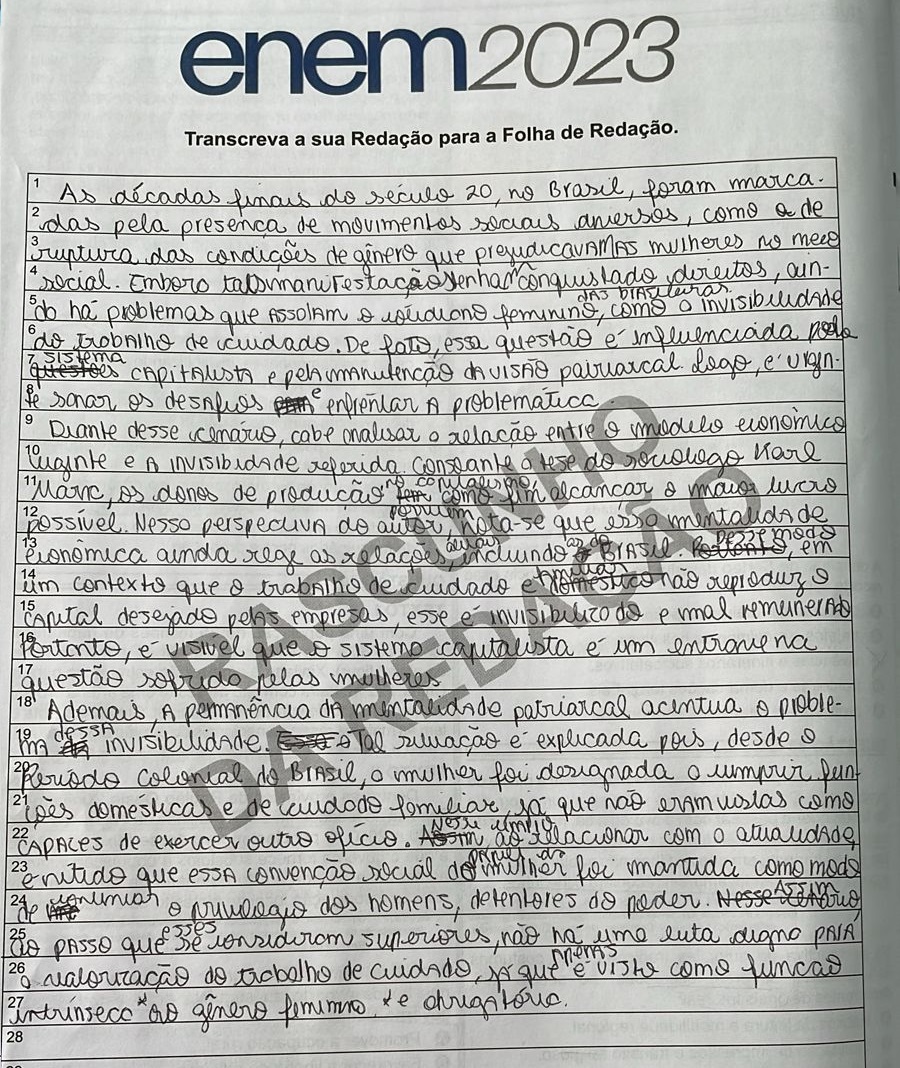 enem2023
Transcreva a sua Redação para a Folha de Redação.
1 As décadas finais do século 20, no Brasil, foram marca-
2 das pela presença de movimentos sociais diversos, como a de
3 ruptura das condições de gênero que prejudicavam as mulheres no meio
4 social. Embora tais manifestações tenham conquistado direitos, ain-
das brasileiras
5 da há problemas que assolam o cotidiano feminino, como a invisibilidade
6 do trabalho de cuidado. De fato, essa questão é influenciada pelo
sistema
7 questões capitalista e pela manutenção da visão patriarcal. Logo, é urgen-
8 te sanar os desafios para e enfrentar a problemática.
9 Diante desse cenário, cabe analisar a relação entre o modelo econômico
10 vigente e a invisibidade referida. Consoante a tese do sociólogo Karl
no capitalismo
11 Marx, os donos de produção tem como fim alcançar o maior lucro
12 possível. Nesso perspectiva do autor, nota-se que essa mentalidade
13 econômica ainda rege as relações, incluindo as do Brasil. Portanto, Desse modo, em
familiar
14 um contexto que o trabalho de cuidado e doméstico não reproduz o
15 capital desejado pelas empresas, esse é invisibilizado e mal remunerado
16 Portanto, é visível que o sistema capitalista é um entrave na
17 questão sofrida pelas mulheres
18 Ademais, a permanência da mentalidade patriarcal acentua o proble-
dessa
19 ma da invisibilidade. Essa Tal situação é explicada pois, desde o
20 Período colonial do Brasil, a mulher foi designada a cumprir fun-
21 ções domésticas e de cuidado familiar, já que não eram vistas como
Nesse âmbito
22 capazes de exercer outro ofício. Assim, ao relacionar com a atualidade,
papel da
23 é nítido que essa convenção social do mulher foi mantida como modo
24 de o privilegio dos homens, detentores do poder. Nesse cenário, Assim
esses
25 ao passo que se consideram superiores, não há uma luta digna para
apenas
26 a valorização do trabalho de cuidado, já que é visto como função
27 intrínseca * ao gênero feminino. * e obrigatória.
28
RASCUNHO
DA REDAÇÃO